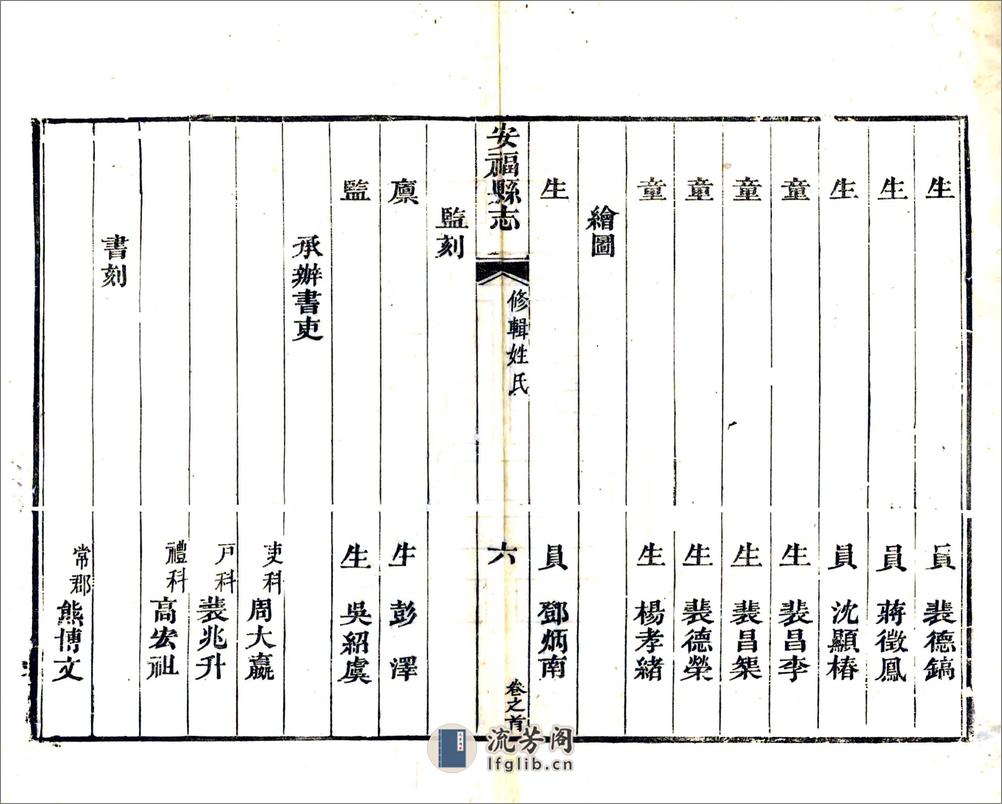 生員裴德鎬
生員蔣徵鳳
生員沈顯椿
童生裴昌李
童生裴昌榘
童生裴德榮
童生楊孝緒
繪圖
生員鄧炳南
安福縣志
修輯姓氏
六
卷之首
監刻
廩生彭澤
監生吳紹虞
承辦書吏
吏科周大嬴
戶科裴兆升
禮科高宏祖
書刻
常郡熊博文
流芳阁
lfglib.cn